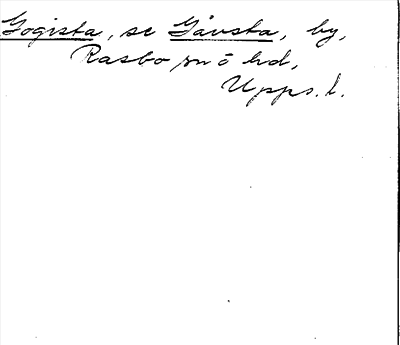 Gogista, se Gåvsta, by,
Rasbo sn o hd,
Upps. l.